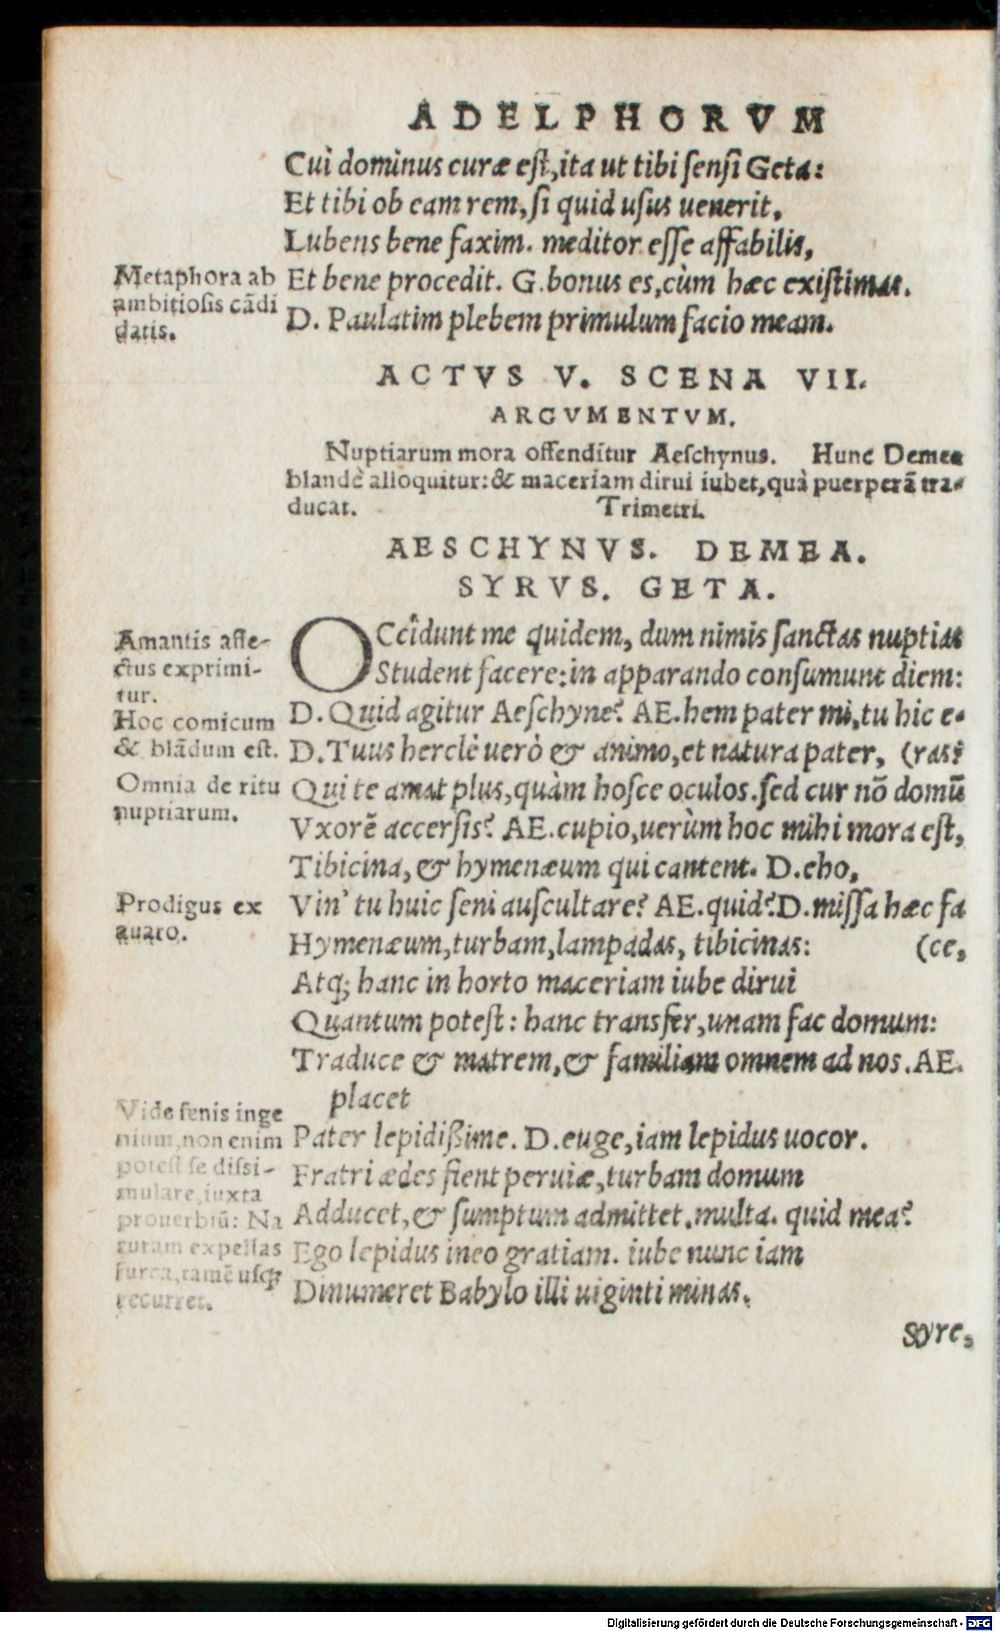 ADELPHORVM
Cui dominus curæ eſt, ita ut tibi ſenſi Geta:
Et tibi ob eam rem, ſi quid uſus uenerit,
Lubens bene faxim. meditor eſſe affabilis,
Metaphora ab
ambitioſis cādi
datis.
Et bene procedit. G. bonus es, cùm hæc exiſtimas.
D. Paulatim plebem primulum facio meam.
ACTVS V. SCENA VII.
ARGVMENTVM.
Nuptiarum mora offenditur Aeſchynus. Hunc Demea
blandè alloquitur: & maceriam dirui iubet, quà puerperā tra-
ducat. Trimetri.
AESCHYNVS. DEMEA.
SYRVS. GETA.
Amantis affe-
ctus exprimi-
tur.
Hoc comicum
& blādum eſt.
Omnia de ritu
nuptiarum.
OCcidunt me quidem, dum nimis ſanctas nuptias
Student facere: in apparando conſumunt diem:
D. Quid agitur Aeſchyne? AE. hem pater mi, tu hic e-
D. Tuus herclè uerò & animo, et natura pater, (ras?
Qui te amat plus, quàm hoſce oculos. ſed cur nō domū
Vxorē accerſis? AE. cupio, uerùm hoc mihi mora eſt,
Tibicina, & hymenæum qui cantent. D. eho,
Prodigus ex
auaro.
Vin' tu huic ſeni auſcultare? AE. quid? D. miſſa hæc fa
Hymenæum, turbam, lampadas, tibicinas: (ce,
Atq; hanc in horto maceriam iube dirui
Quantum poteſt: hanc transfer, unam fac domum:
Traduce & matrem, & familiam omnem ad nos. AE.
placet
Vide ſenis inge
nium, non enim
poteſt ſe diſsi-
mulare, iuxta
prouerbiū: Na
turam expellas
furca, tamē uſq;
recurret.
Pater lepidißime. D. euge, iam lepidus uocor.
Fratri ædes fient peruiæ, turbam domum
Adducet, & ſumptum admittet. multa. quid mea?
Ego lepidus ineo gratiam. iube nunc iam
Dinumeret Babylo illi uiginti minas.
Syre,
Digitalisierung gefördert durch die Deutsche Forschungsgemeinschaft - DFG